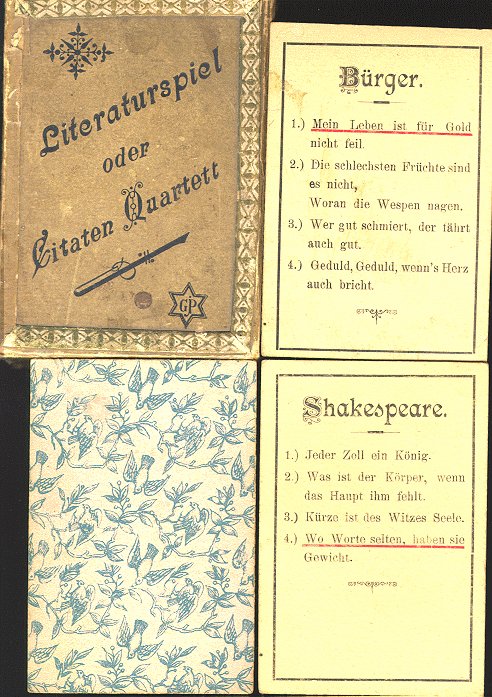 Literaturspiel
oder
Citaten Quartett
GP
Bürger.
1.) Mein Leben ist für Gold
nicht feil.
2.) Die schlechsten Früchte sind
es nicht,
Woran die Wespen nagen.
3.) Wer gut schmiert, der fährt
auch gut.
4.) Geduld, Geduld, wenn's Herz
auch bricht.
Shakespeare.
1.) Jeder Zoll ein König.
2.) Was ist der Körper, wenn
das Haupt ihm fehlt.
3.) Kürze ist des Witzes Seele.
4.) Wo Worte selten, haben sie
Gewicht.